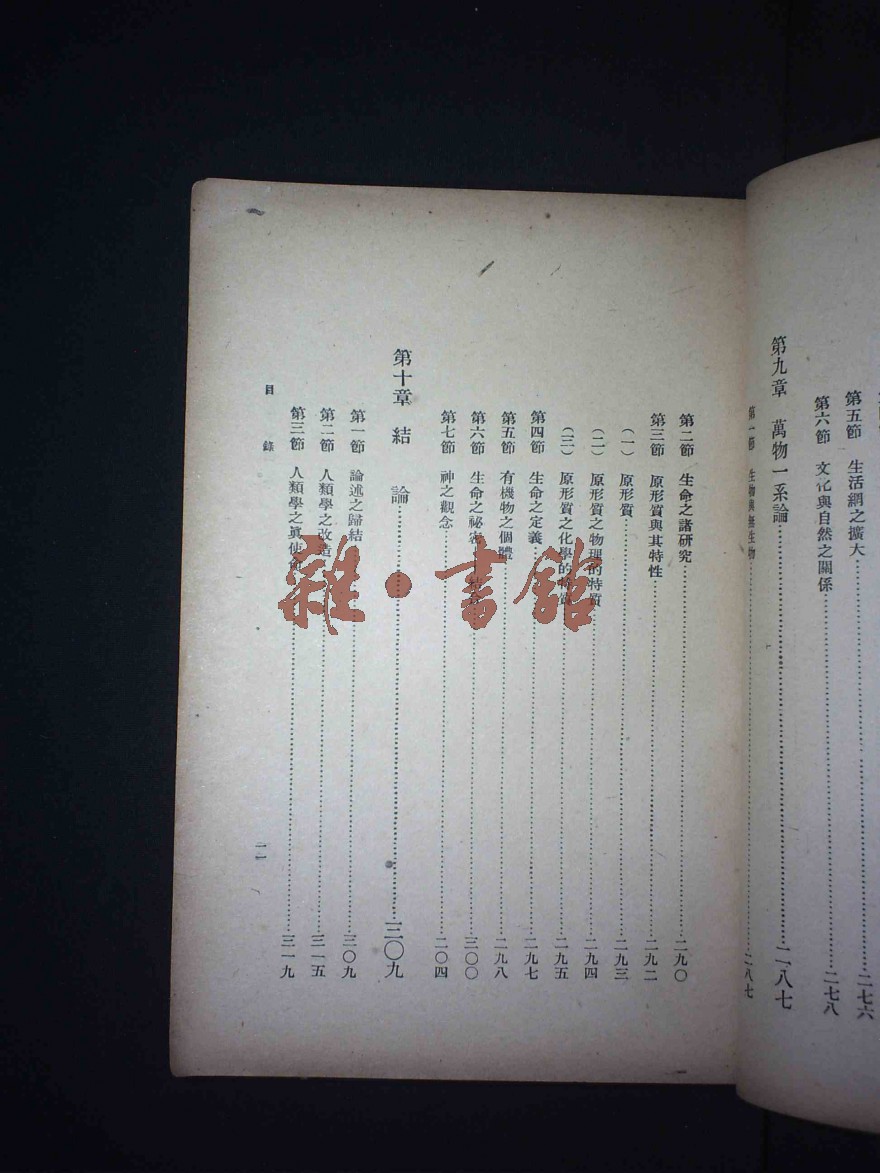 第五節 生活網之擴大……二七六
第六節 文化與自然之關係……二七八
第九章 萬物一系論……二八七
第一節 生物與無生物……二八七
第二節 生命之諸研究……二九〇
第三節 原形質與其特性……二九二
（一） 原形質……二九三
（二） 原形質之物理的特質……二九四
（三） 原形質之化學的特質……二九五
第四節 生命之定義……二九七
第五節 有機物之個體……二九八
第六節 生命之祕密……三〇〇
第七節 神之觀念……二〇四
第十章 結 論……三〇九
第一節 論述之歸結……三〇九
第二節 人類學之改造……三一五
第三節 人類學之眞使命……三一九
目 錄
一一
雜·書館